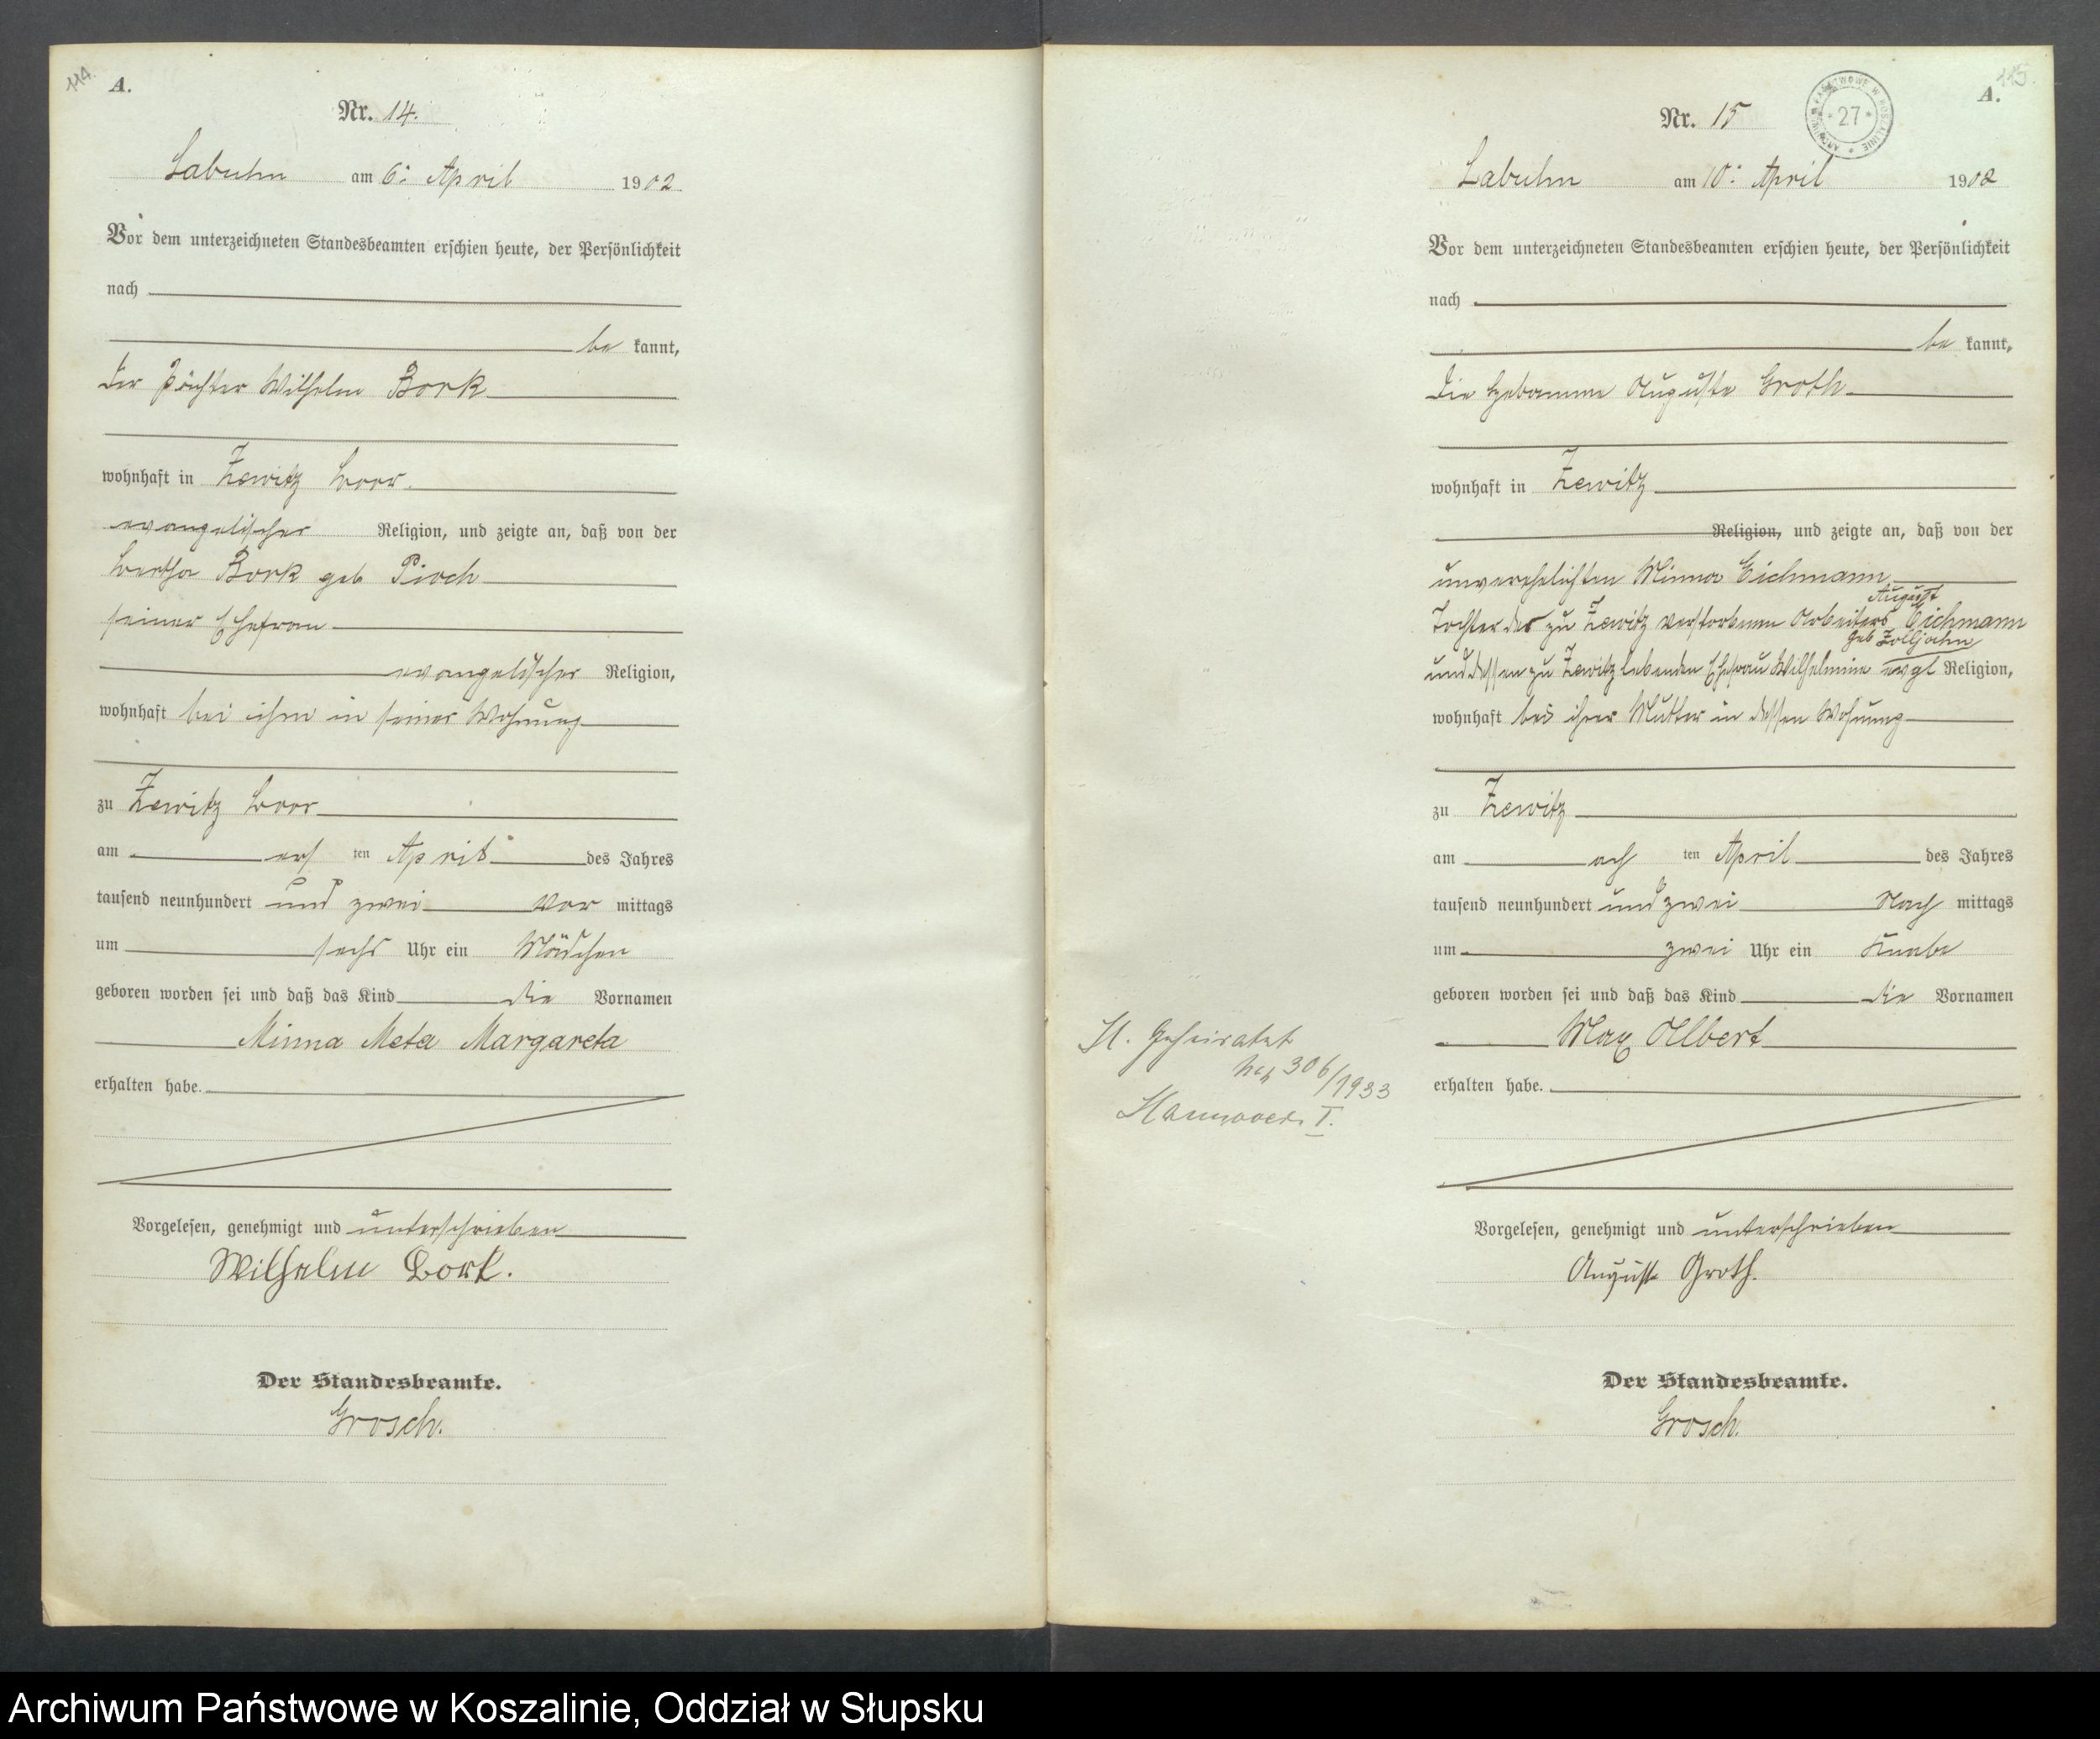 114.
A.
Nr. 14.
Labuhn am 6. April 1902
Vor dem unterzeichneten Standesbeamten erschien heute, der Persönlichkeit
nach
be kannt,
der Pächter Wilhelm Bork
wohnhaft in Zewitz
evangelischer Religion, und zeigte an, daß von der
Bertha Bork geb Pioch
seiner Ehefrau
evangelischer Religion,
wohnhaft bei ihm in seiner Wohnung
zu Zewitz
am ten April des Jahres
tausend neunhundert und zwei vor mittags
um sechs Uhr ein Mädchen
geboren worden sei und daß das Kind die Vornamen
Minna Meta Margareta
erhalten habe.
Vorgelesen, genehmigt und unterschrieben
Wilhelm Bork.
Der Standesbeamte.
Grosch.
115.
A.
ARCHIWUM PAŃSTWOWE W KOSZALINIE
27
Nr. 15
Labuhn am 10. April 1902
Vor dem unterzeichneten Standesbeamten erschien heute, der Persönlichkeit
nach
be kannt,
die Hebamme Auguste Groth
wohnhaft in Zewitz
Religion, und zeigte an, daß von der
unverehelichten Minna Eichmann
August
Tochter des zu Zewitz verstorbenen Arbeiters Eichmann
geb Zolljahn
und dessen zu Zewitz lebenden Ehefrau Wilhelmine evgl Religion,
wohnhaft bei ihrer Mutter in dessen Wohnung
zu Zewitz
am ach ten April des Jahres
tausend neunhundert und zwei Nach mittags
um zwei Uhr ein Knabe
geboren worden sei und daß das Kind die Vornamen
Max Albert
erhalten habe.
Vorgelesen, genehmigt und unterschrieben
Auguste Groth.
Der Standesbeamte.
Grosch.
Geheiratet
306/1933
Hannover I.
Archiwum Państwowe w Koszalinie, Oddział w Słupsku